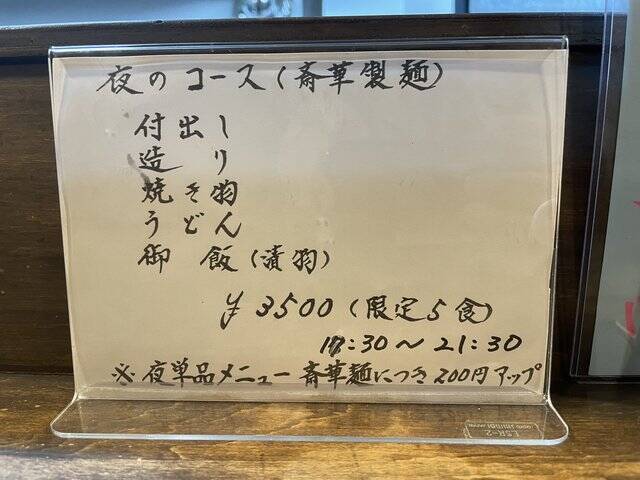 夜のコース(斎華製麺)
付出し
造り
焼き物
うどん
御飯(漬物)
¥3500(限定5食)
17:30〜21:30
※夜単品メニュー斎華麺につき200円アップ